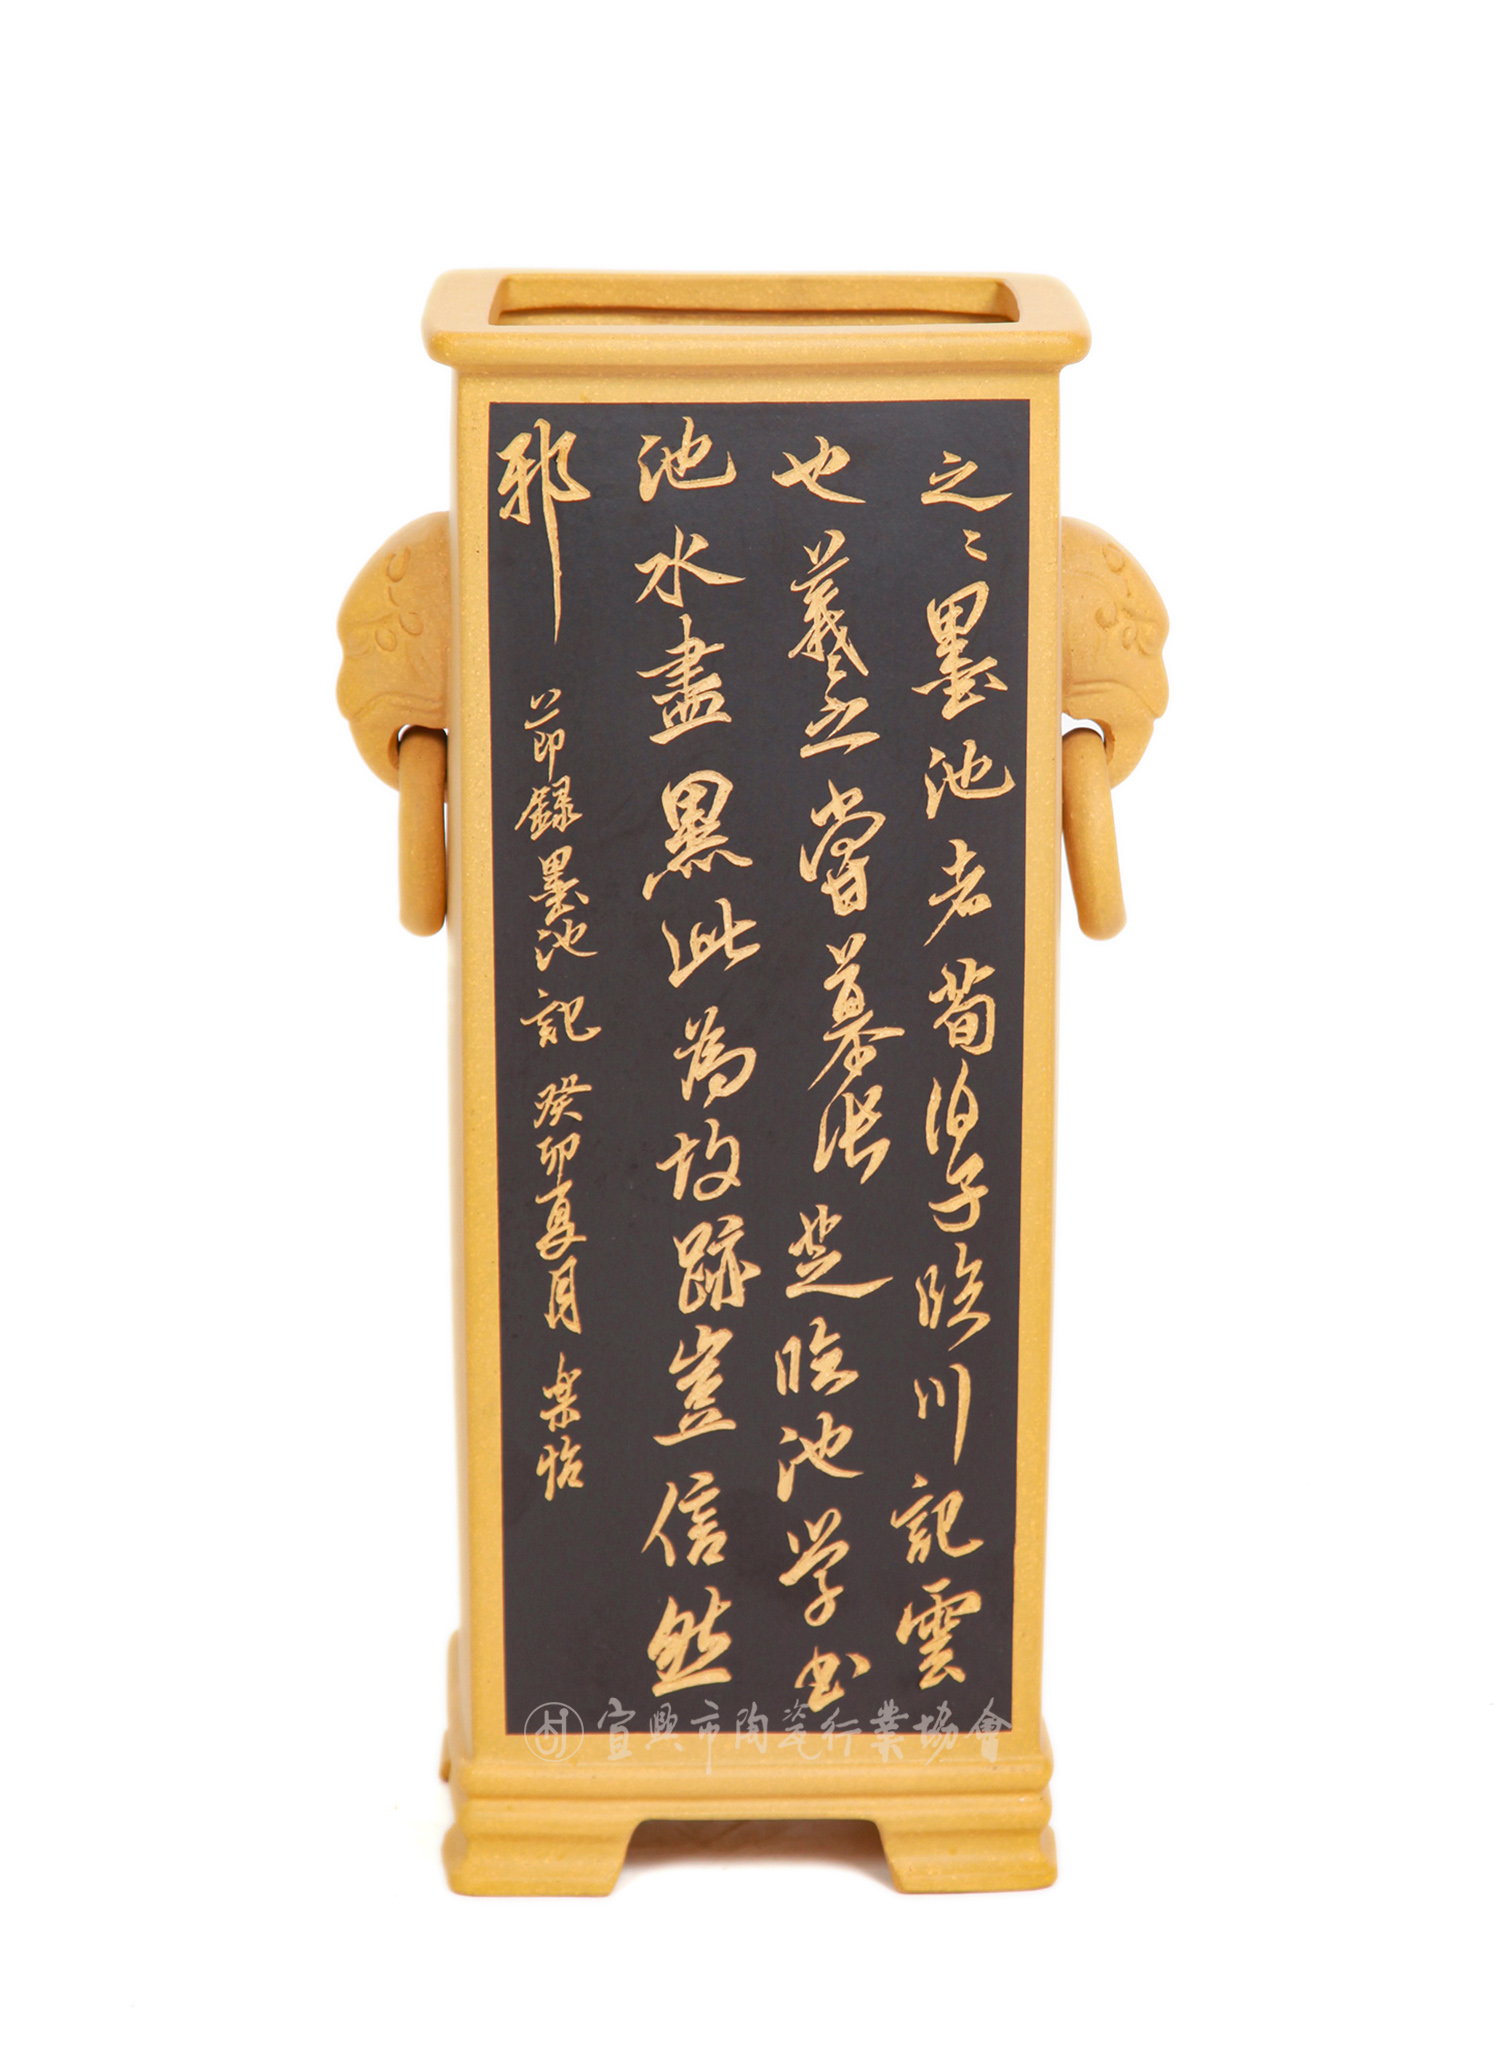 之〻墨池者荀伯子臨川記雲
也羲之嘗慕張芝臨池學書
池水盡黑此為故跡豈信然
邪
節録墨池記癸卯夏月樂怡
宜興市陶瓷行業協會